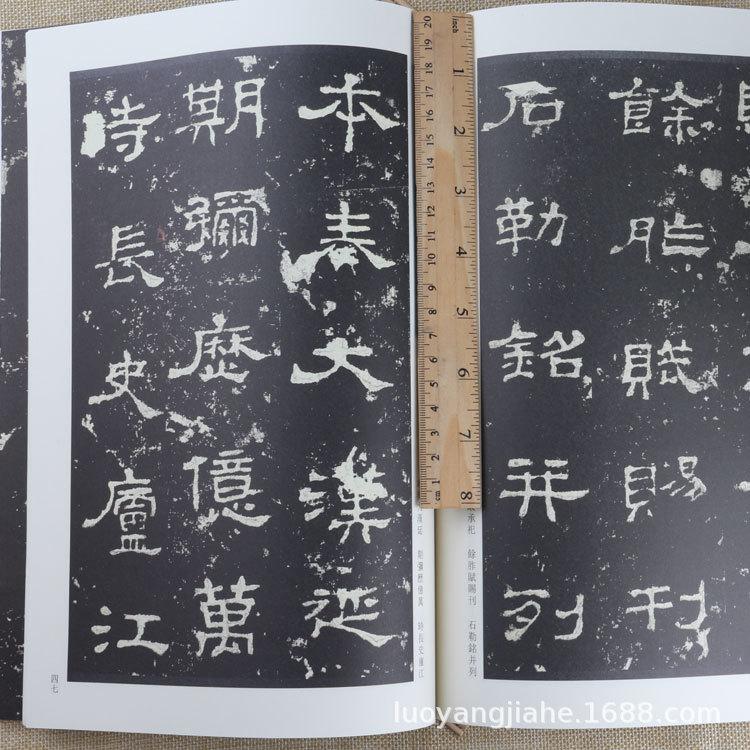 餘胙賦賜刊
石勒銘并列
承祀 餘胙賦賜刊 石勒銘并列
本奏大漢延
期彌歷億萬
時長史廬江
漢延 期彌歷億萬 時長史廬江
四七
20 19 18 17 16 15 14 13 12 11 10 9 8 7 6 5 4 3 2 1 cm
inch 1 2 3 4 5 6 7 8
luoyangjiahe.1688.com